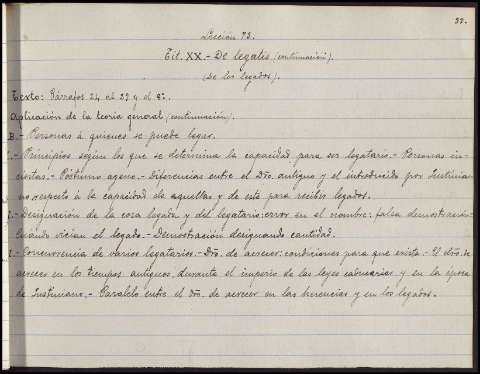 22.
Lección 73.
Tit. XX.- De legatis (continuación).
(De los legados).
Texto: Párrafos 24 al 29 y el 8º.
Aplicación de la teoría general, (continuación).
B.- Personas á quienes se puede legar.
1.- Principios según los que se determina la capacidad para ser legatario.- Personas in-
ciertas.- Póstumo ageno.- Diferencias entre el Dro. antiguo y el introducido por Justinia-
no, respecto á la capacidad de aquellas y de este para recibir legados.
2.- Designación de la cosa legada y del legatario: error en el nombre: falsa demostración:
Cuándo vician el legado.- Demostración designando cantidad.
3.- Concurrencia de varios legatarios.- Dro. de acrecer: condiciones para que exista.- El dro. de
acrecer en los tiempos antiguos, durante el imperio de las leyes caducarias y en la época
de Justiniano.- Paralelo entre el dro. de acrecer en las herencias y en los legados.